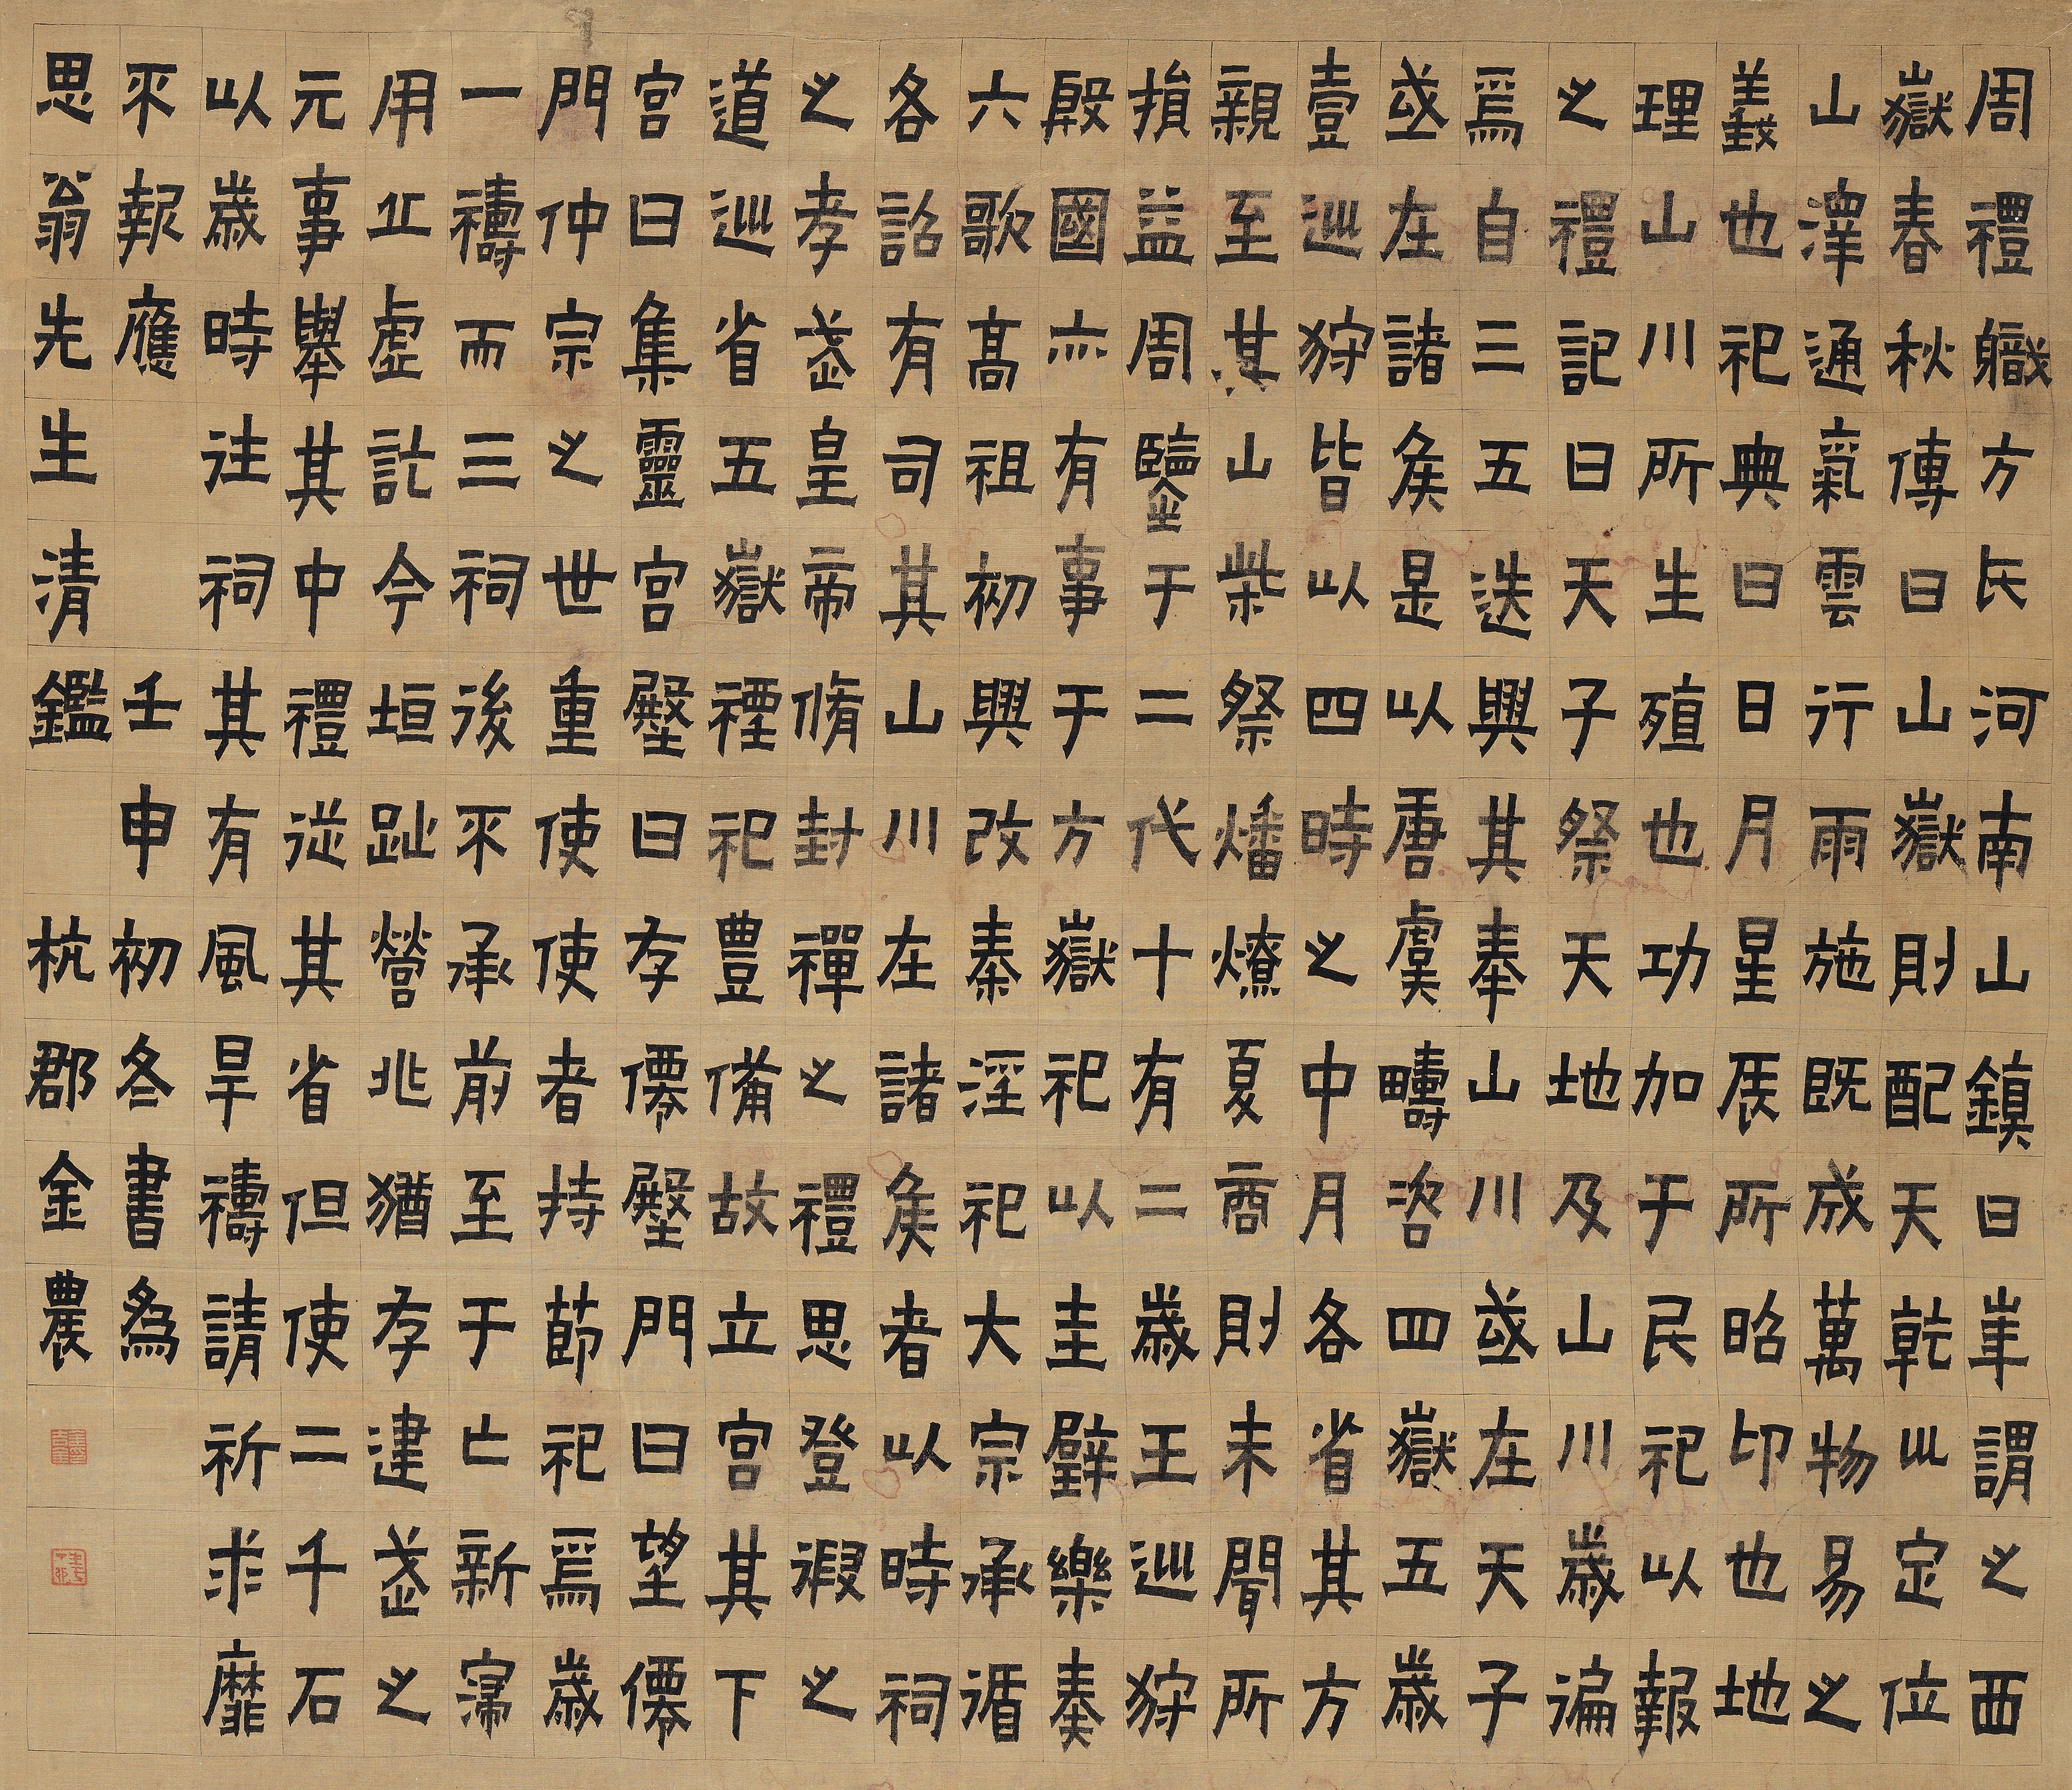 周禮職方氏河南山鎮曰崋謂之西
嶽春秋傳曰山嶽則配天乾㘴定位
山澤通氣雲行雨施既成萬物易之
義也祀典曰日月星辰所昭卬也地
理山川所生殖也功加于民祀以報
之禮記曰天子祭天地及山川歲徧
焉自三五迭興其奉山川或在天子
或在諸矦是以唐虞疇咨四嶽五歲
壹巡狩皆以四時之中月各省其方
親至其山柴祭燔燎夏商則未聞所
損益周鑒于二代十有二歲王巡狩
殷國亦有事于方嶽祀以圭璧樂奏
六歌高祖初興改秦淫祀大宗承循
各詔有司其山川在諸矦者以時祠
之孝武皇帝脩封禪之禮思登遐之
道巡省五嶽禋祀豐備故立宮其下
宮曰集靈宮壂曰存僊壂門曰望僊
門仲宗之世重使使者持莭祀焉歲
一禱而三祠後不承前至于亡新寖
用丠虛訖今垣趾營兆猶存建武之
元事舉其中禮從其省但使二千石
以歲時往祠其有風旱禱請祈求靡
不報應　壬申初冬書為
思翁先生清鑑　杭郡金農